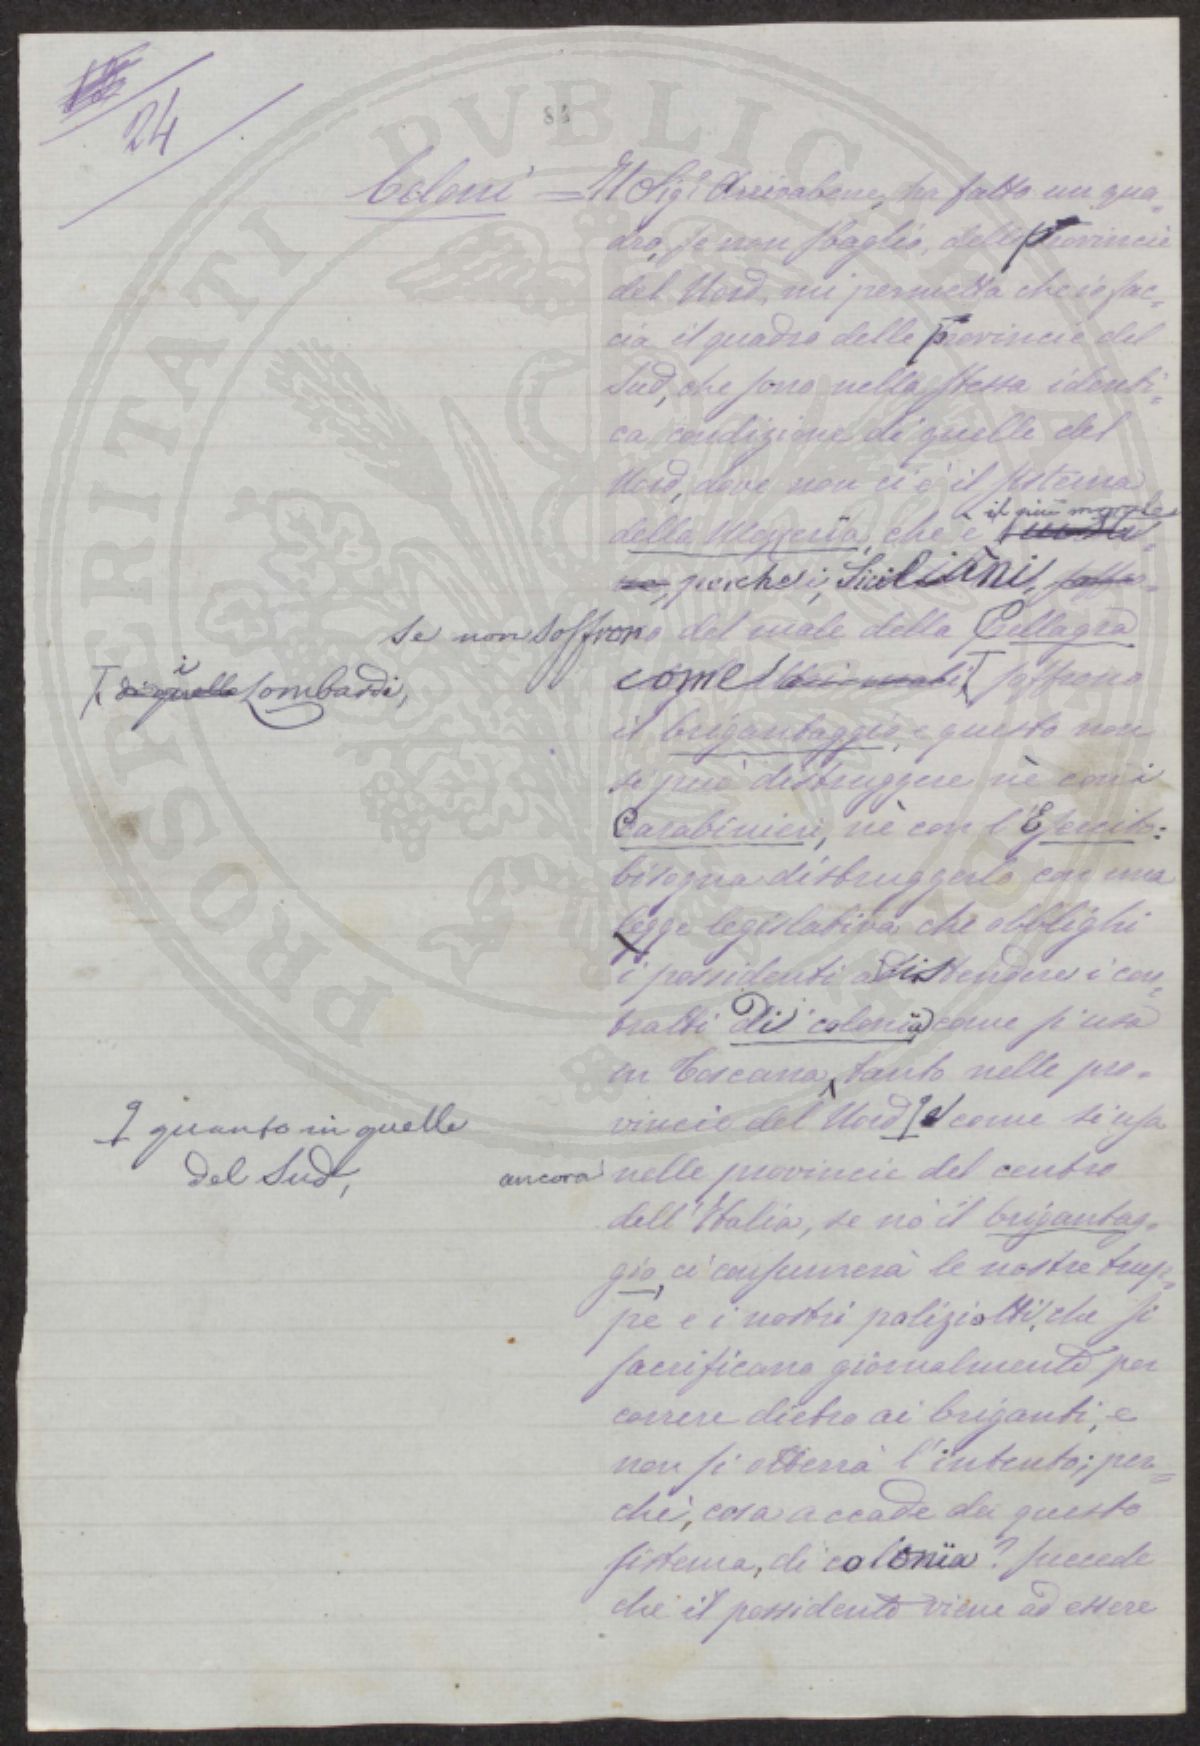 24
84
Coloni = Il Sig.r Arrivabene, ha fatto un qua=
dro, se non sbaglio, delle Provincie
del Nord, mi permetta che io fac=
cia il quadro delle Provincie del
Sud, che sono nella stessa identi=
ca condizione di quelle del
Nord, dove non ci è il sistema
il più morale
della Mezzeria, che è
perche i Siciliani,
se non soffrono del male della Pellagra
come soffrono
i Lombardi,
il brigantaggio, e questo non
si può distruggere nè con i
Carabinieri, nè con l'Esercito:
bisogna distruggerlo con una
legge legislativa che obblighi
i possidenti a distendere i con=
tratti di colonìa come si usa
in Toscana, tanto nelle pro=
vincie del Nord come si usa
quanto in quelle
del Sud,
ancora nelle provincie del centro
dell'Italia, se no il brigantag=
gio, ci consumerà le nostre trup=
pe e i nostri poliziotti, che si
sacrificano giornalmente per
correre dietro ai briganti, e
non si otterrà l'intento; per=
chè, cosa accade da questo
sistema, di colonìa? succede
che il possidente viene ad essere
PVBLICAE
PROSPERITATI